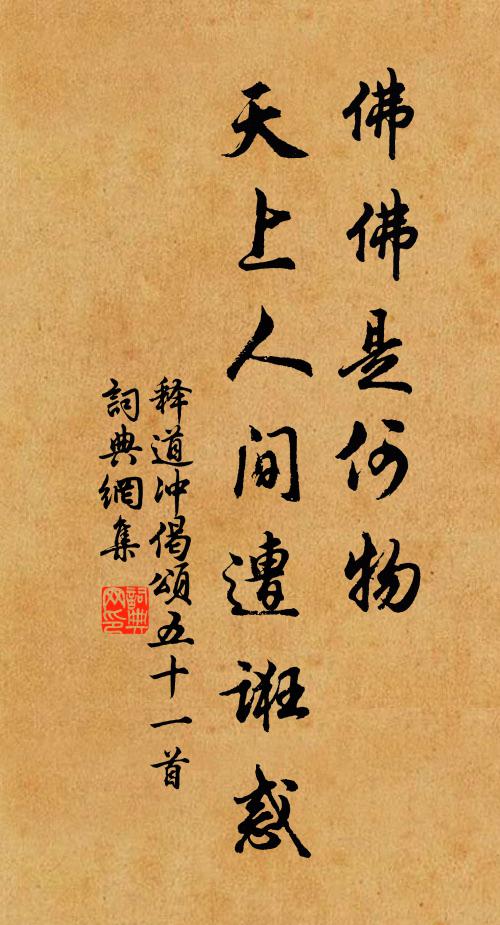 佛佛是何物
天上人间遭誑惑
释道冲偈颂五十一首
詞典網集
詞典网印